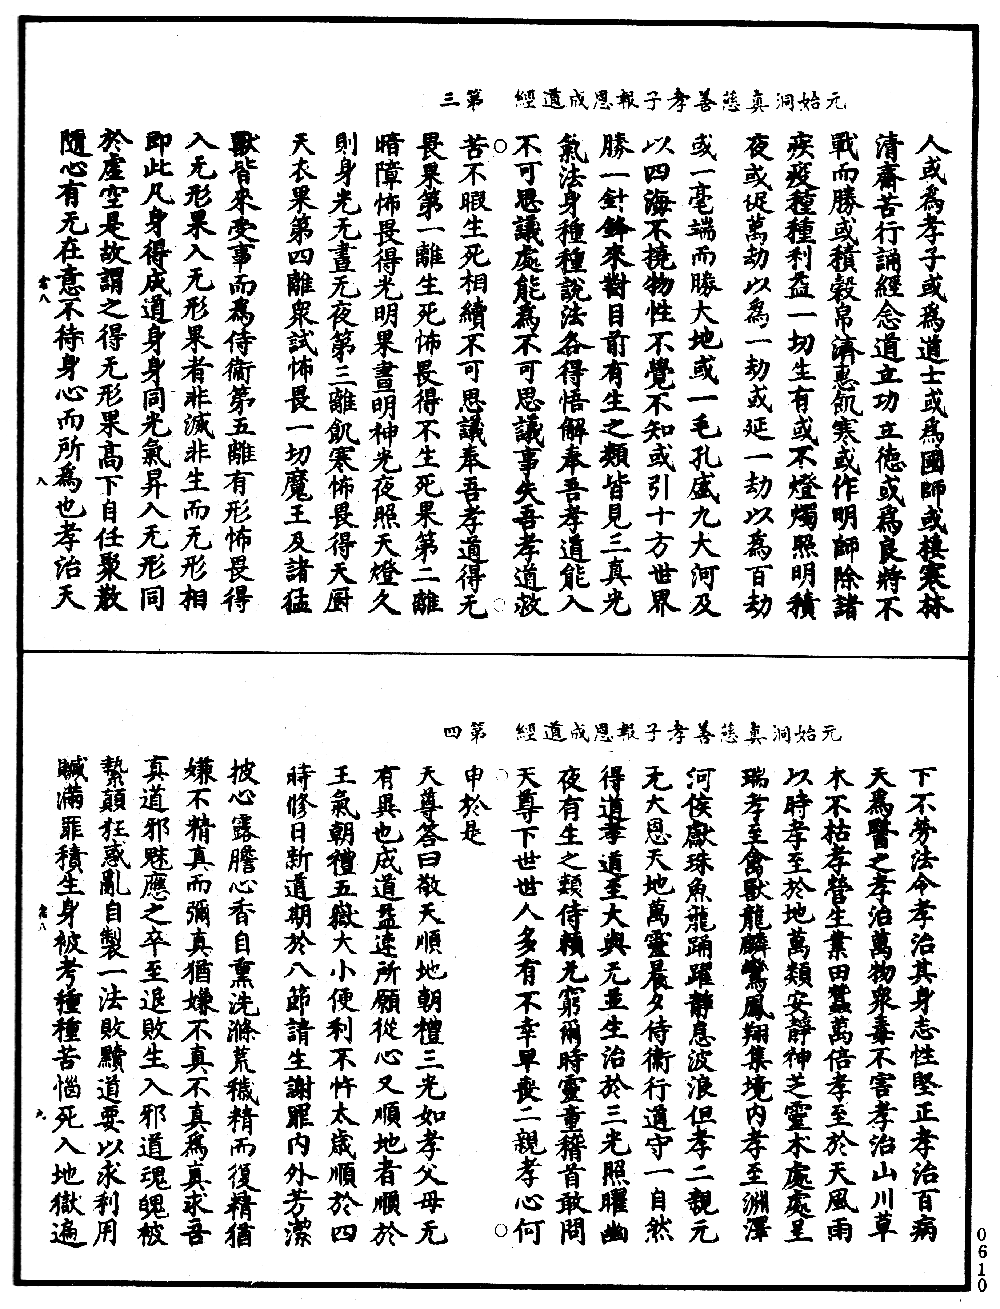 元始洞真慈善孝子報恩成道經　第三
人或為孝子或為道士或為國師或棲寒林
清齋苦行誦經念道立功立德或為良將不
戰而勝或積穀帛濟惠飢寒或作明師除諸
疾疫種種利益一切生有或不燈燭照明積
夜或促萬劫以為一劫或延一劫以為百劫
或一毫端而勝大地或一毛孔盛九大河及
以四海不撓物性不覺不知或引十方世界
勝一針鋒來對目前有生之類皆見三真光
氣法身種種說法各得悟解奉吾孝道能入
不可思議處能為不可思議事失吾孝道救
苦不暇生死相續不可思議奉吾孝道得无
畏果第一離生死怖畏得不生死果第二離
暗障怖畏得光明果晝明神光夜照天燈久
則身光无晝无夜第三離飢寒怖畏得天厨
天衣果第四離眾試怖畏一切魔王及諸猛
獸皆來受事而為侍衞第五離有形怖畏得
入无形果入无形果者非滅非生而无形相
即此凡身得成道身身同光氣昇入无形同
於虛空是故謂之得无形果高下自任聚散
隨心有无在意不待身心而所為也孝治天
八
元始洞真慈善孝子報恩成道經　第四
下不勞法令孝治其身志性堅正孝治百病
天為醫之孝治萬物眾毒不害孝治山川草
木不枯孝營生業田蠶萬倍孝至於天風雨
以時孝至於地萬類安靜神芝靈木處處呈
瑞孝至禽獸龍麟鸞鳳翔集境內孝至淵澤
河侯獻珠魚龍踊躍靜息波浪但孝二親元
无大恩天地萬靈晨夕侍衞行道守一自然
得道孝道至大與无並生治於三光照曜幽
夜有生之類侍賴无窮爾時靈童稽首敢問
天尊下世世人多有不幸早喪二親孝心何
申於是
天尊荅曰敬天順地朝禮三光如孝父母无
有異也成道益速所願從心又順地者順於
王氣朝禮五嶽大小便利不忤太歲順於四
時修日新道期於八節請生謝罪內外芳潔
披心露膽心香自熏洗滌荒穢精而復精猶
嫌不精真而彌真猶嫌不真不真為真求吾
真道邪魅應之卒至退敗生入邪道魂魄被
縶顛狂惑亂自製一法敗黷道要以求利用
贓滿罪積生身被考種種苦惱死入地獄遍
九
0610